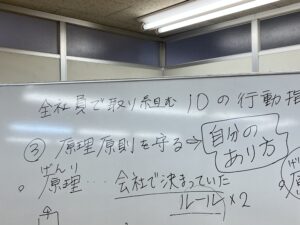 全社員で取り組む 10の行動指
③ 原理原則を守る⇒ 自分の
あり方
げんり
。原理… 会社で決まっていた
ルール×2